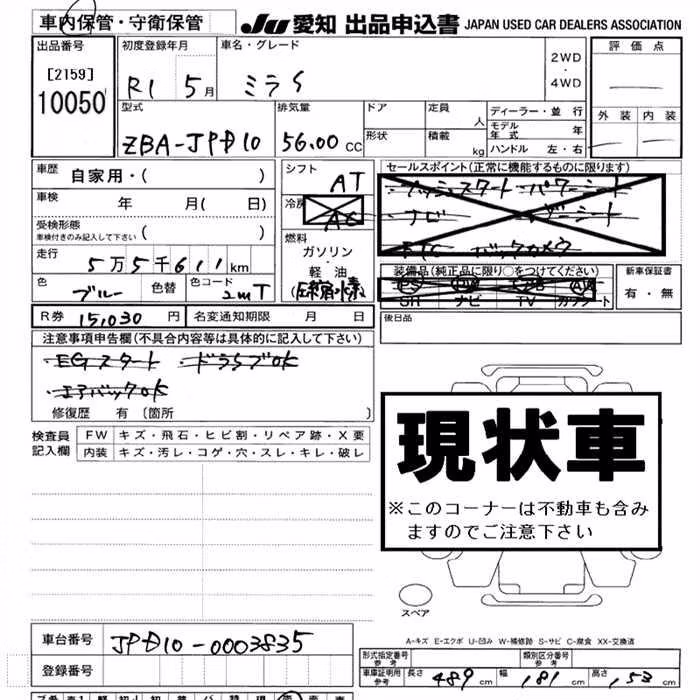 車内保管・守衛保管 JU 愛知 出品申込書 JAPAN USED CAR DEALERS ASSOCIATION
出品番号 初度登録年月 車名・グレード 評価点
[2159] 2WD
・
10050 R1 5月 ミライ 4WD
外装 内装
型式 排気量 ドア 定員 人 ディーラー・並行
モデル年式 年
ZBA-JPD10 5600 CC 形状 積載 kg ハンドル 左・右
車歴 自家用・( ) シフト AT セールスポイント(正常に機能するものに限ります)
プッシュスタート パワーシート
車検 年 月( 日) 冷房 AC ナビ レザーシート
受検形態
車検付きのみ記入して下さい ( ) 燃料 ETC バックカメラ
走行 5万5千611km ガソリン・軽油 (圧縮水素) 装備品(純正品に限り○をつけてください) 新車保証書
色 ブルー 色替 色コード 2mT PS PW エアB AW 有・無
SR ナビ TV カワシート
R券 15,030円 名変通知期限 月 日 後日品
注意事項申告欄(不具合内容等は具体的に記入して下さい)
EGスタート ドラらブOK
エアバックOK
修復歴 有 〔箇所 〕
検査員記入欄 FW キズ・飛石・ヒビ割・リペア跡・X要
内装 キズ・汚レ・コゲ・穴・スレ・キレ・破レ
現状車
※このコーナーは不動車も含み
ますのでご注意下さい
スペア
A-キズ E-エクボ U-凹み W-補修跡 S-サビ C-腐食 XX-交換済
車台番号 JPD10-0003835
形式指定番号 参考 類別区分番号 参考
登録番号 車庫証明用 参考 長さ 489cm 幅 181cm 高さ 153cm